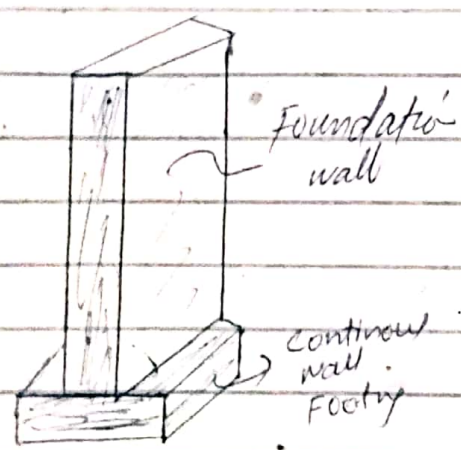 Foundatio
wall
Continous
wall
Footing